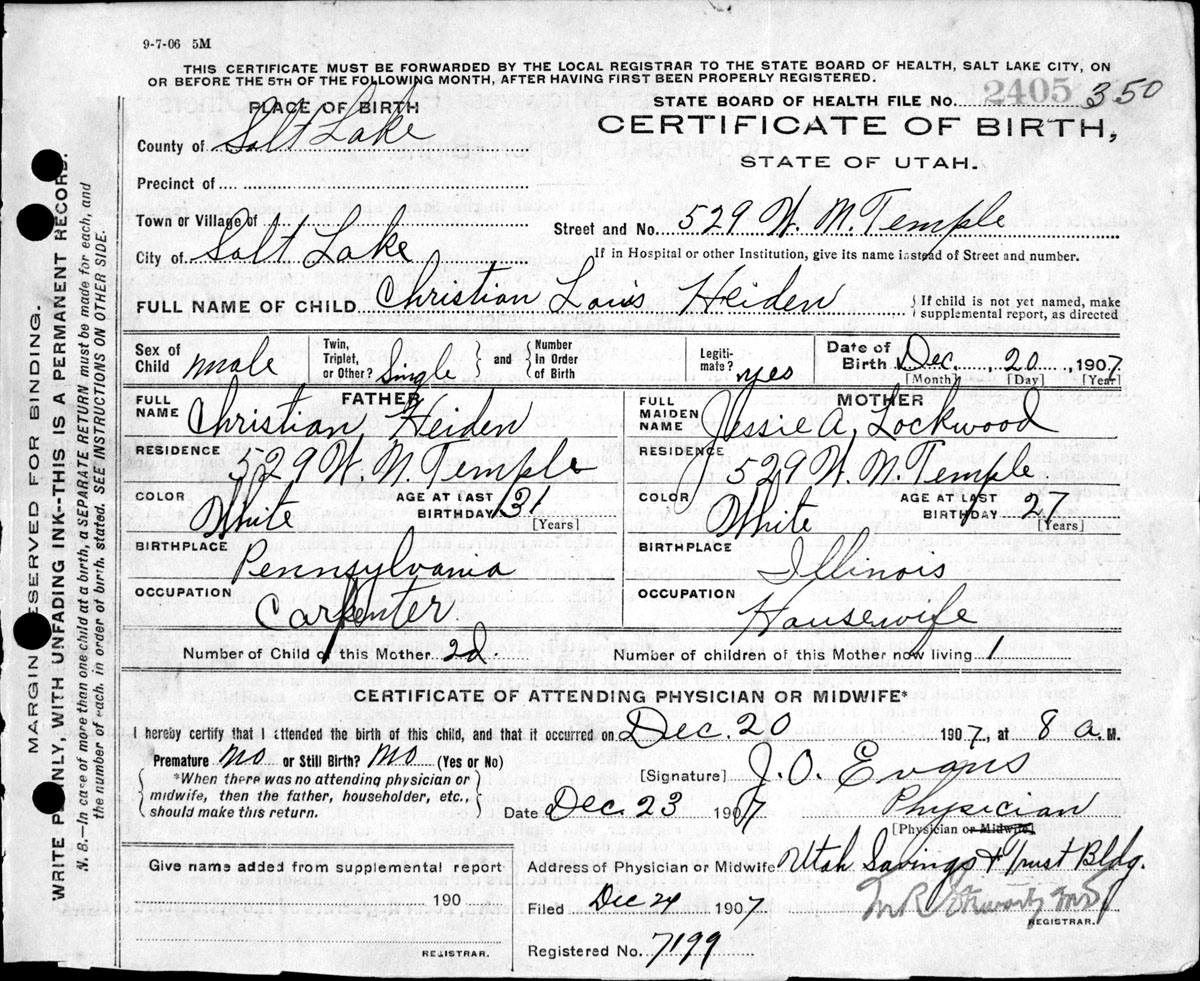 9-7-06 5M
THIS CERTIFICATE MUST BE FORWARDED BY THE LOCAL REGISTRAR TO THE STATE BOARD OF HEALTH, SALT LAKE CITY, ON
OR BEFORE THE 5TH OF THE FOLLOWING MONTH, AFTER HAVING FIRST BEEN PROPERLY REGISTERED.
PLACE OF BIRTH
STATE BOARD OF HEALTH FILE NO. 2405 350
County of Salt Lake
CERTIFICATE OF BIRTH,
STATE OF UTAH.
Precinct of
Town or Village of
Street and No. 529 W. N. Temple
City of Salt Lake
If in Hospital or other Institution, give its name instead of Street and number.
FULL NAME OF CHILD Christian Louis Heiden
If child is not yet named, make
supplemental report, as directed
Sex of Child male
Twin, Triplet, or Other? Single and Number in Order of Birth
Legitimate? yes
Date of Birth Dec. 20, 1907
[Month] [Day] [Year]
FATHER
FULL NAME Christian Heiden
RESIDENCE 529 W. N. Temple
COLOR White AGE AT LAST BIRTHDAY 31 [Years]
BIRTHPLACE Pennsylvania
OCCUPATION Carpenter
MOTHER
FULL MAIDEN NAME Jessie A. Lockwood
RESIDENCE 529 W. N. Temple
COLOR White AGE AT LAST BIRTHDAY 27 [Years]
BIRTHPLACE Illinois
OCCUPATION Housewife
Number of Child of this Mother 2d
Number of children of this Mother now living 1
CERTIFICATE OF ATTENDING PHYSICIAN OR MIDWIFE*
I hereby certify that I attended the birth of this child, and that it occurred on Dec. 20 1907, at 8 a. M.
Premature No or Still Birth? No (Yes or No)
*When there was no attending physician or
midwife, then the father, householder, etc.,
should make this return.
[Signature] J. O. Evans
Date Dec. 23 1907 Physician
[Physician or Midwife]
Give name added from supplemental report
190
REGISTRAR.
Address of Physician or Midwife Utah Savings & Trust Bldg.
Filed Dec 24 1907
REGISTRAR.
Registered No. 7199
MARGIN RESERVED FOR BINDING.
WRITE PLAINLY, WITH UNFADING INK--THIS IS A PERMANENT RECORD.
N. B.—In case of more than one child at a birth, a SEPARATE RETURN must be made for each, and
the number of each, in order of birth, stated. SEE INSTRUCTIONS ON OTHER SIDE.